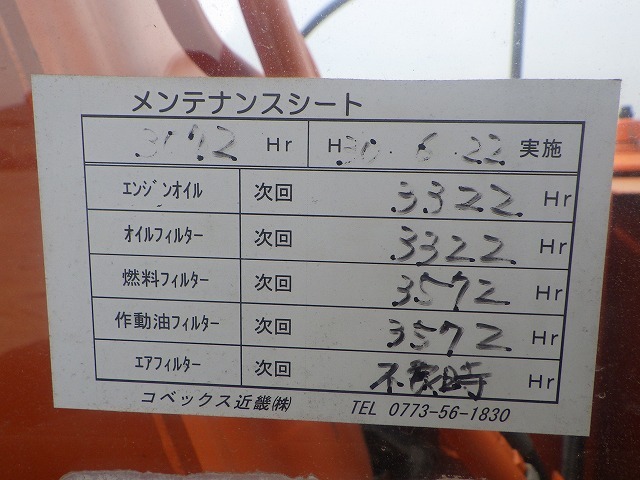 メンテナンスシート
3172 Hr H30.6.22 実施
エンジンオイル 次回 3322 Hr
オイルフィルター 次回 3322 Hr
燃料フィルター 次回 3572 Hr
作動油フィルター 次回 3572 Hr
エアフィルター 次回 Hr
コベックス近畿㈱ TEL 0773-56-1830